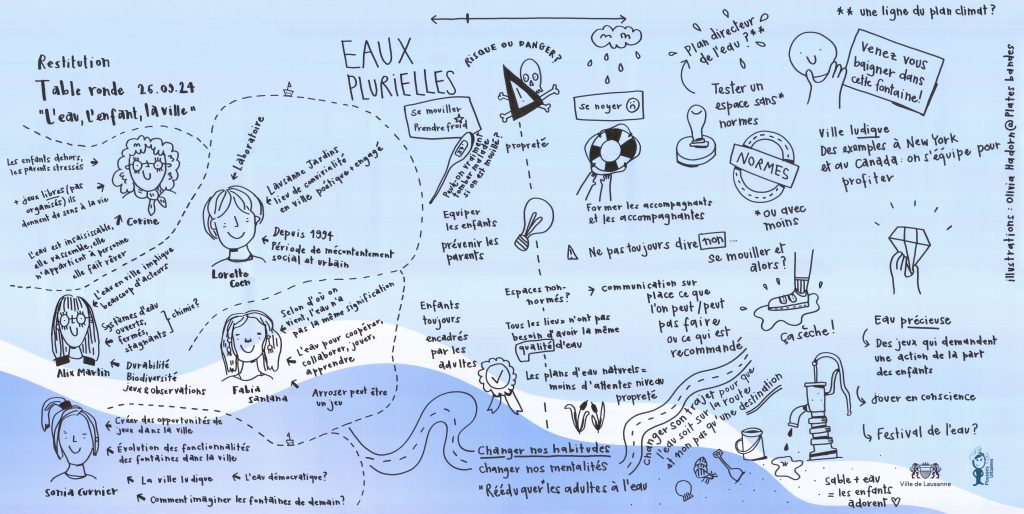 Restitution
Table ronde 26.03.24
"L'eau, l'enfant, la ville"
Les enfants dehors,
les parents stressés
+ jeux libres (pas
organisés) ils
donnent du sens à la vie
Corine
L'eau est insaisissable,
elle rassemble, elle
n'appartient à personne
elle fait rêver
Laboratoire
Lausanne Jardins
lieu de convivialité
en ville poétique & engagé
Depuis 1994
Période de mécontentement
social et urbain
Loretto
Coen
L'eau en ville implique
beaucoup d'acteurs
Systèmes d'eau
ouverts,
fermés,
stagnants
chimie?
Alix Martin
Durabilité
Biodiversité
Jeux & observations
Selon d'où on
vient, l'eau n'a
pas la même signification
L'eau pour coopérer,
collaborer, jouer,
apprendre
Arroser peut être
un jeu
Fabia
Santana
Sonia Curnier
Créer des opportunités de
jeux dans la ville
Évolution des fonctionnalités
des fontaines dans la ville
La ville ludique
L'eau démocratique?
Comment imaginer les fontaines de demain?
EAUX
PLURIELLES
RISQUE OU DANGER?
se mouiller
Prendre froid
Peut-on vraiment
tomber malade
si on est mouillé?
propreté
se noyer
Equiper
les enfants
prévenir les
parents
Former les accompagnants
et les accompagnantes
Ne pas toujours dire non ...
Enfants
toujours
encadrés
par les
adultes
Espaces non-
normés?
communication sur
place ce que
l'on peut/peut
pas faire
ou ce qui est
recommandé
Tous les lieux n'ont pas
besoin d'avoir la même
qualité d'eau
Les plans d'eau naturels =
moins d'attentes niveau
propreté
Changer nos habitudes
changer nos mentalités
"Rééduquer" les adultes à l'eau
changer son trajet pour que
l'eau soit sur la route
et non pas qu'une destination
Plan directeur
de l'eau? **
** une ligne du plan climat?
Tester un
espace sans*
normes
NORMES
*ou avec
moins
Venez vous
baigner dans
cette fontaine!
Ville ludique
Des exemples à New York
et au Canada: on s'équipe pour
profiter
se mouiller et
alors?
ça sèche!
Eau précieuse
Des jeux qui demandent
une action de la part
des enfants
Jouer en conscience
Festival de l'eau?
Sable + eau
= les enfants
adorent ♡
Ville de Lausanne
illustrations: Olivia Hadorn @ Plates bandes